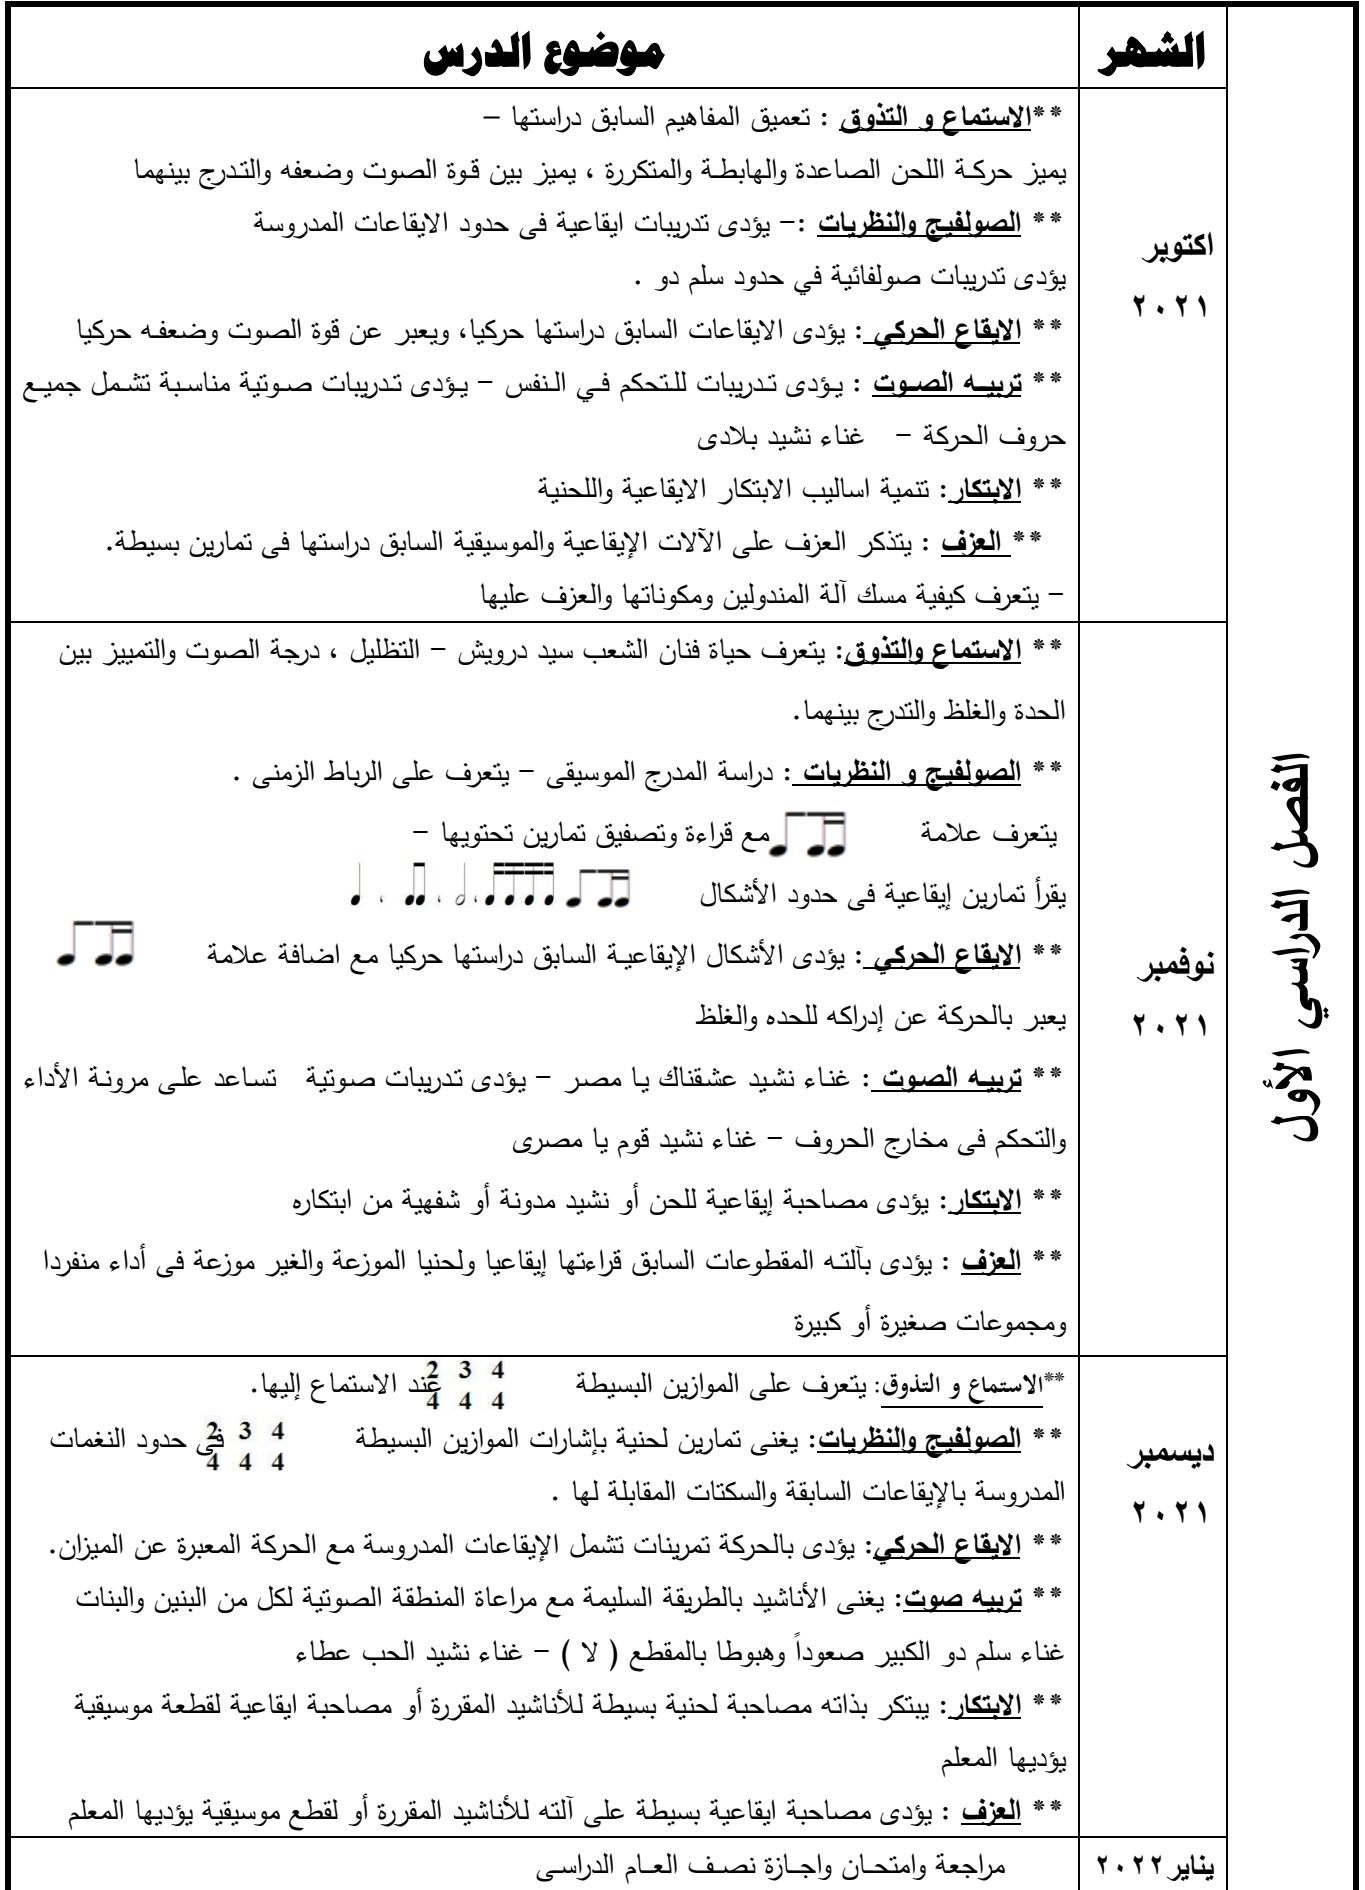 الشهر موضوع الدرس
الفصل الدراسي الأول
اكتوبر
٢٠٢١
**الاستماع و التذوق : تعميق المفاهيم السابق دراستها –
يميز حركة اللحن الصاعدة والهابطة والمتكررة ، يميز بين قوة الصوت وضعفه والتدرج بينهما
** الصولفيج والنظريات :– يؤدى تدريبات ايقاعية فى حدود الايقاعات المدروسة
يؤدى تدريبات صولفائية في حدود سلم دو .
** الايقاع الحركي : يؤدى الايقاعات السابق دراستها حركيا، ويعبر عن قوة الصوت وضعفه حركيا
** تربيه الصوت : يؤدى تدريبات للتحكم في النفس – يؤدى تدريبات صوتية مناسبة تشمل جميع
حروف الحركة – غناء نشيد بلادى
** الابتكار: تنمية اساليب الابتكار الايقاعية واللحنية
** العزف : يتذكر العزف على الآلات الإيقاعية والموسيقية السابق دراستها فى تمارين بسيطة.
– يتعرف كيفية مسك آلة المندولين ومكوناتها والعزف عليها
نوفمبر
٢٠٢١
** الاستماع والتذوق: يتعرف حياة فنان الشعب سيد درويش – التظليل ، درجة الصوت والتمييز بين
الحدة والغلظ والتدرج بينهما.
** الصولفيج و النظريات : دراسة المدرج الموسيقى – يتعرف على الرباط الزمنى .
يتعرف علامة مع قراءة وتصفيق تمارين تحتويها –
يقرأ تمارين إيقاعية فى حدود الأشكال
** الايقاع الحركي : يؤدى الأشكال الإيقاعية السابق دراستها حركيا مع اضافة علامة
يعبر بالحركة عن إدراكه للحده والغلظ
** تربيه الصوت : غناء نشيد عشقناك يا مصر – يؤدى تدريبات صوتية تساعد على مرونة الأداء
والتحكم فى مخارج الحروف – غناء نشيد قوم يا مصرى
** الابتكار: يؤدى مصاحبة إيقاعية للحن أو نشيد مدونة أو شفهية من ابتكاره
** العزف : يؤدى بآلته المقطوعات السابق قراءتها إيقاعيا ولحنيا الموزعة والغير موزعة فى أداء منفردا
ومجموعات صغيرة أو كبيرة
ديسمبر
٢٠٢١
**الاستماع و التذوق: يتعرف على الموازين البسيطة 2 3 4 عند الاستماع إليها.
4 4 4
** الصولفيج والنظريات: يغنى تمارين لحنية بإشارات الموازين البسيطة 2 3 4 فى حدود النغمات
4 4 4
المدروسة بالإيقاعات السابقة والسكتات المقابلة لها .
** الايقاع الحركي: يؤدى بالحركة تمرينات تشمل الإيقاعات المدروسة مع الحركة المعبرة عن الميزان.
** تربيه صوت: يغنى الأناشيد بالطريقة السليمة مع مراعاة المنطقة الصوتية لكل من البنين والبنات
غناء سلم دو الكبير صعوداً وهبوطا بالمقطع ( لا ) – غناء نشيد الحب عطاء
** الابتكار: يبتكر بذاته مصاحبة لحنية بسيطة للأناشيد المقررة أو مصاحبة ايقاعية لقطعة موسيقية
يؤديها المعلم
** العزف : يؤدى مصاحبة ايقاعية بسيطة على آلته للأناشيد المقررة أو لقطع موسيقية يؤديها المعلم
يناير٢٠٢٢ مراجعة وامتحان واجازة نصف العام الدراسى